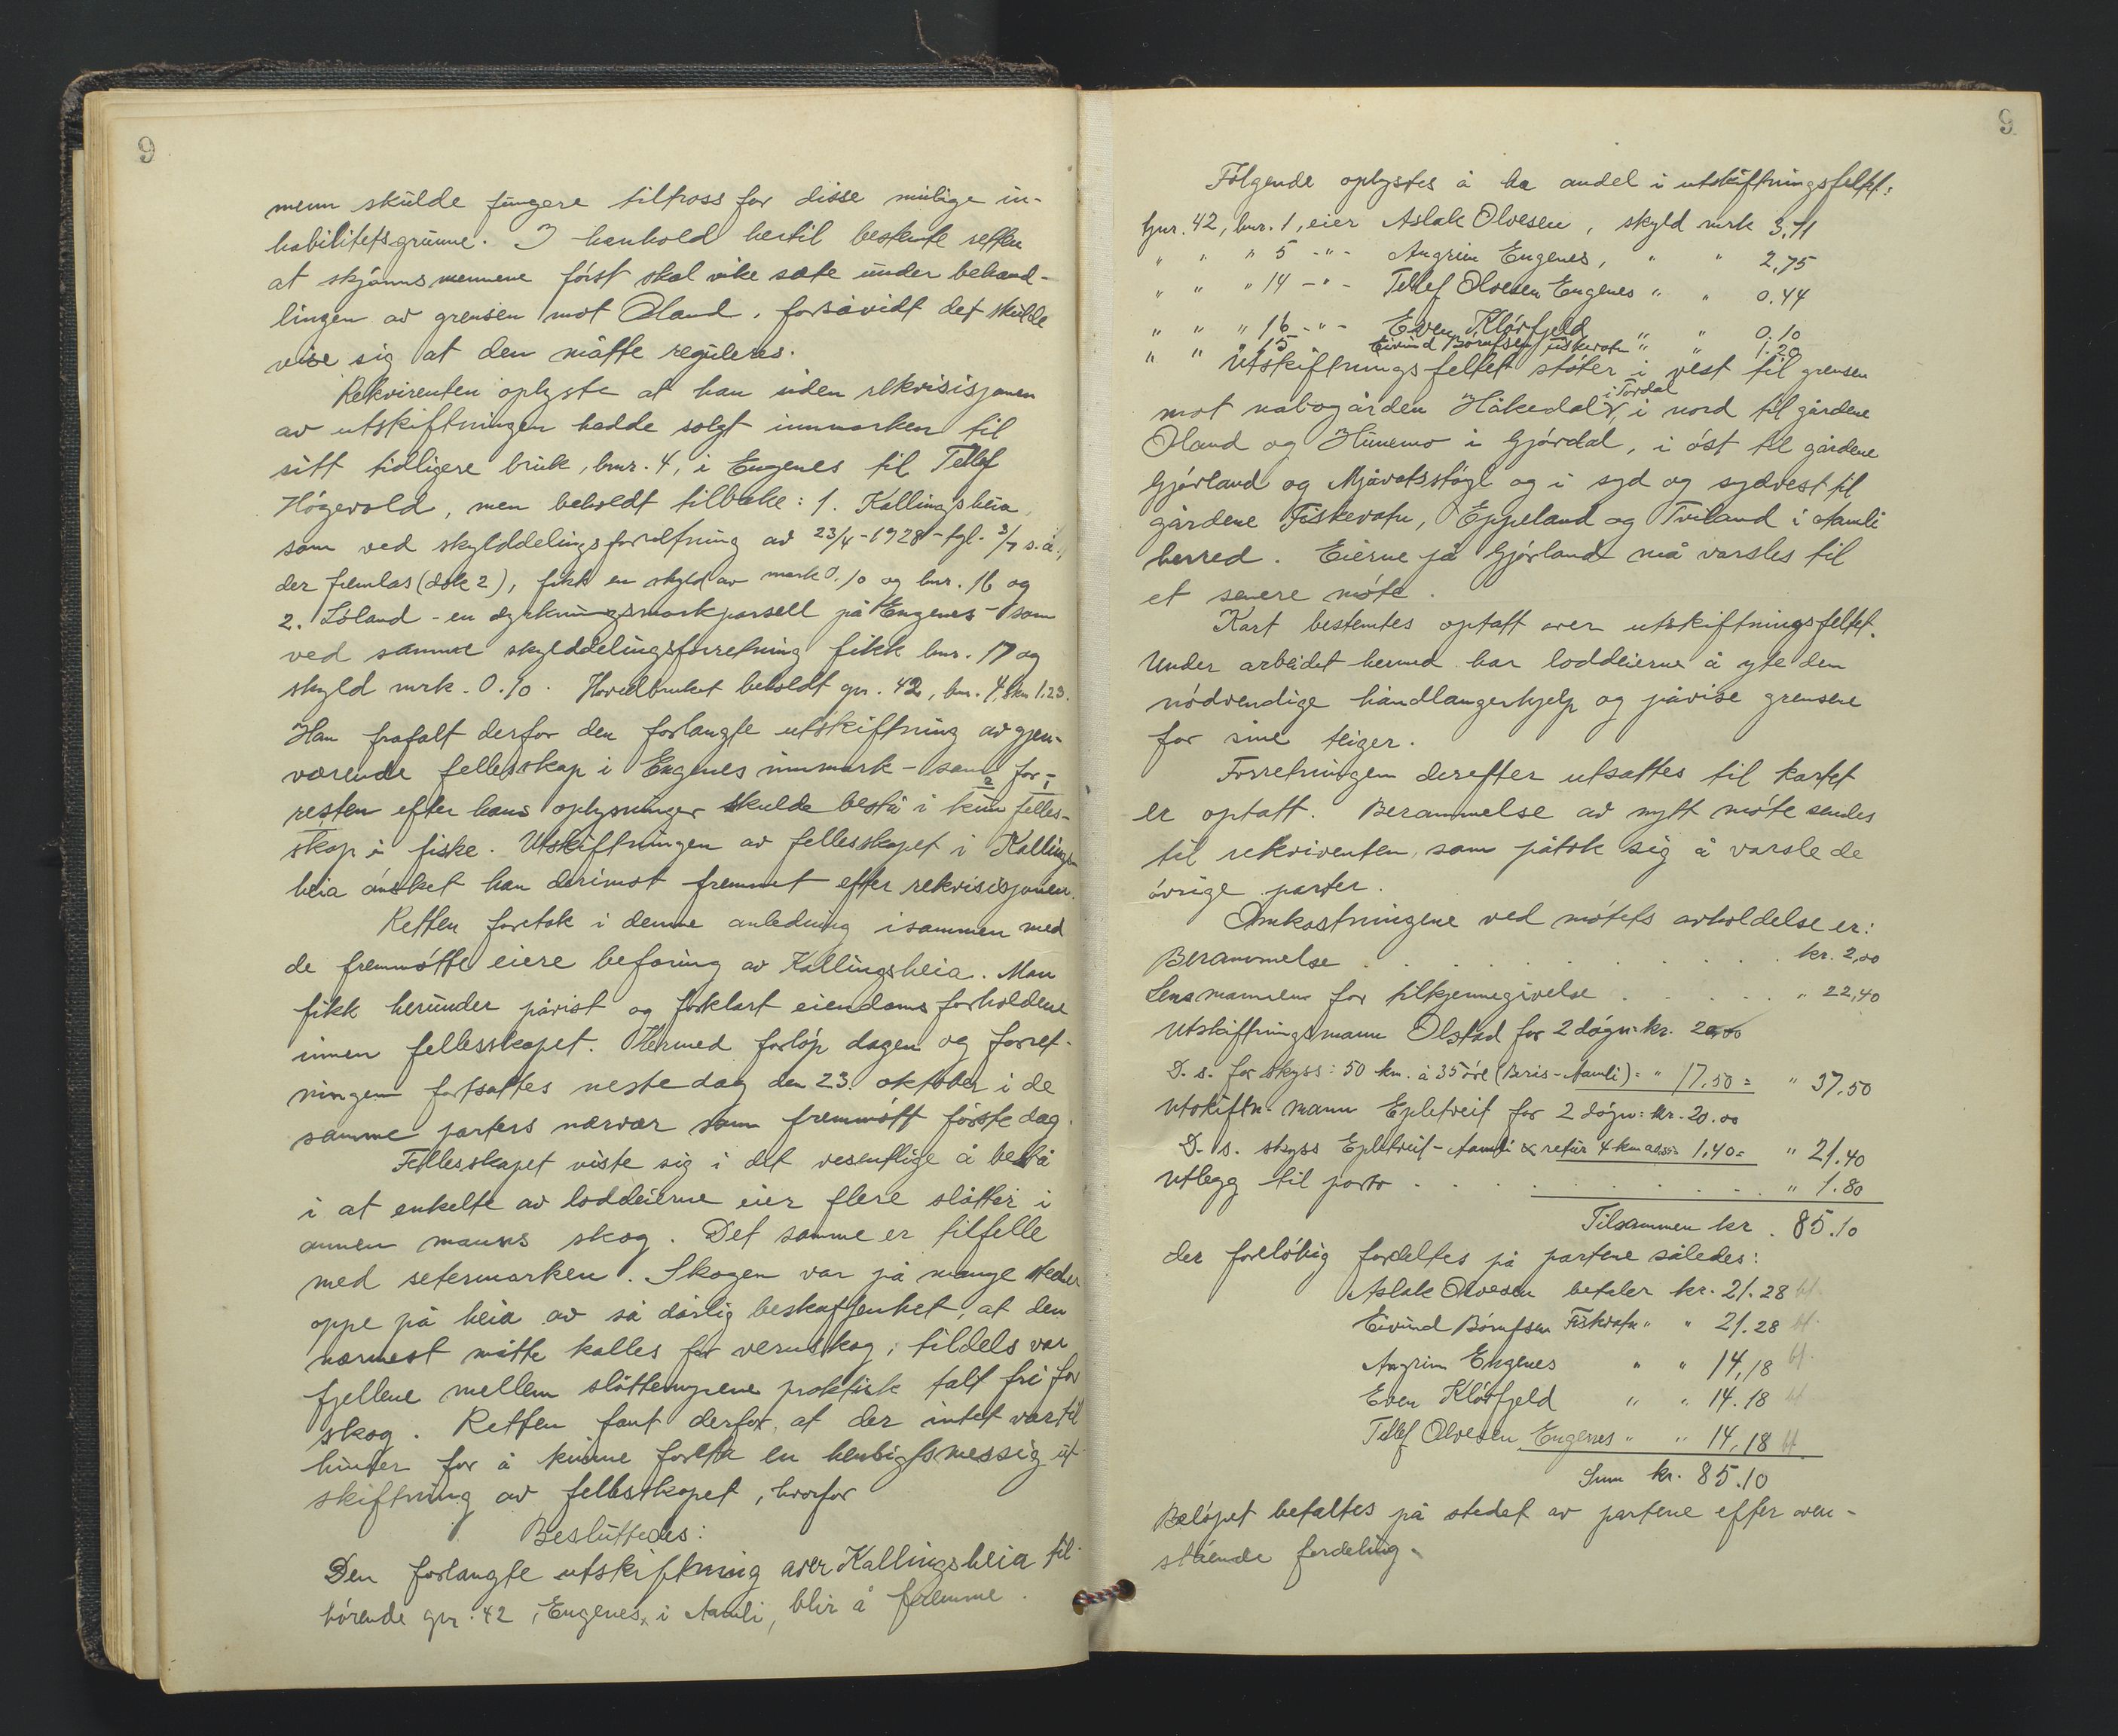 9
menn skulde fungere tiltross for disse mulige in-
habilitetsgrunne. I henhold hertil bestemte retten
at skjønnsmennene först skal vike sæte under behand-
lingen av grensen mot Öland, forsåvidt det skulde
vise sig at den måtte reguleres.
Rekvirenten oplyste at han siden rekvisisjonen
av utskiftningen hadde solgt innmarken til
sitt tidligere bruk, bnr. 4, i Engenes til Tellef
Högevold, men beholdt tilbake: 1. Kallingsheia,
som ved skylddelingsforretning av 23/4-1928-tgl. 3/7 s.å.,
der fremlas (dok 2), fikk en skyld av mark 0.10 og bnr. 16 og
2. Löland - en dyrkningsmarkparsell på Engenes - som
ved samme skylddelingsforretning fikk bnr. 17 og
skyld mrk. 0.10. Hovedbruket beholdt gnr. 42, bnr. 4, skm 1.23.
Han frafalt derfor den forlangte utskiftning av gjen-
værende fellesskap i Engenes innmark - som for-
resten efter hans oplysninger skulde bestå i kun felles-
skap i fiske. Utskiftningen av fellesskapet i Kallings-
heia ønsket han derimot fremmet efter rekvisisjonen.
Retten foretok i denne anledning isammen med
de fremmötte eiere befaring av Kallingsheia. Man
fikk herunder påvist og forklart eiendomsforholdene
innen fellesskapet. Hermed forløp dagen og forret-
ningen fortsattes neste dag den 23. oktober i de
samme parters nærvær som fremmött förste dag.
Fellesskapet viste sig i det vesentlige å bestå
i at enkelte av loddeierne eier flere slåtter i
annen manns skog. Det samme er tilfelle
med setermarken. Skogen var på mange steder
oppe på heia av så dårlig beskaffenhet, at den
nærmest måtte kalles for vernskog; tildels var
fjellene mellem slåttemyrene praktisk talt fri for
skog. Retten fant derfor, at der intet var til
hinder for å kunne foreta en hensigtsmessig ut-
skiftning av fellesskapet, hvorfor
Besluttedes:
Den forlangte utskiftning over Kallingsheia til-
hörende gnr. 42, Engenes, i Aamli, blir å fremme.
9
Fölgende oplystes å ha andel i utskiftningsfeltet:
Gnr. 42, bnr. 1, eier Aslak Olvesen, skyld mrk 3,11
" " " 5 -"- Angrim Engenes, " " 2,75
" " " 14 -"- Tellef Olvesen Engenes " " 0.44
" " " 16 -"- Even Klörfjeld " " 0.10
" " " 15 Eivind Börufsen Fiskevatn " " 1.20
Utskiftningsfeltet stöter i vest til grensen
mot nabogården Håkedal i Tovdal, i nord til gårdene
Öland og Hunemo i Gjövdal, i öst til gårdene
Gjörland og Mjåvatsstögl og i syd og sydvest til
gårdene Fiskevatn, Eppeland og Tveland i Aamli
herred. Eierne på Gjörland må varsles til
et senere möte.
Kart bestemtes optatt over utskiftningsfeltet.
Under arbeidet hermed har loddeierne å yte den
nödvendige håndlangerhjelp og påvise grensene
for sine teiger.
Forretningen derefter utsattes til kartet
er optatt. Berammelse av nytt möte sendes
til rekvirenten, som påtok sig å varsle de
övrige parter.
Omkostningene ved mötets avholdelse er:
Berammelse . . . . . . . . . . kr. 2,00
Lensmannen for tilkjennegivelse . . . . . " 22,40
Utskiftningsmann Olstad for 2 dögn: kr. 20,00
D. s. for skyss: 50 km. à 35 öre (Beris-Aamli) = " 17.50 = " 37.50
Utskiftn.mann Epletveit for 2 dögn: kr. 20.00
D. s. skyss Epletveit-Aamli & retur 4 km 1,40 = " 21.40
Utlegg til porto . . . . . . . . " 1.80
Tilsammen kr. 85.10
der forelöbig fordeltes på partene således:
Aslak Olvesen betaler kr. 21.28 bt.
Eivind Börufsen Fiskvatn " " 21.28 bt.
Angrim Engenes " " 14,18 bt.
Even Klörfjeld " " 14.18 bt.
Tellef Olvesen Engenes " " 14,18 bt.
Sum kr. 85.10
Belöpet betaltes på stedet av partene efter oven-
stående fordeling.